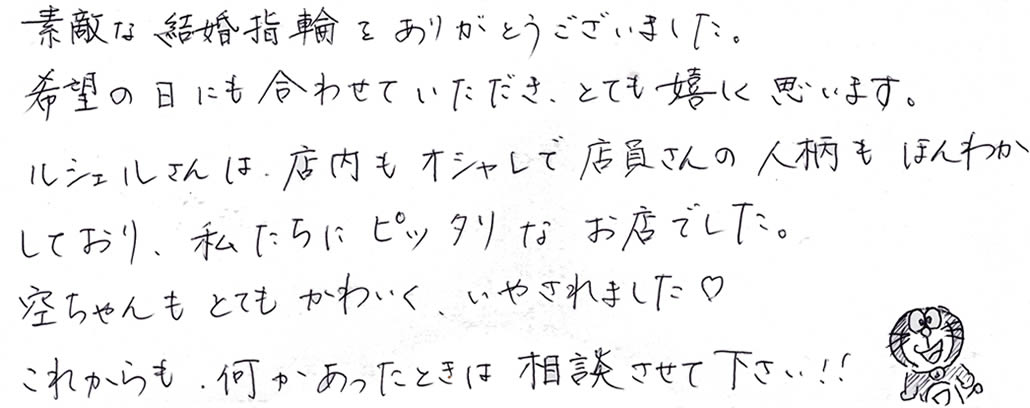 素敵な結婚指輪をありがとうございました。
希望の日にも合わせていただき、とても嬉しく思います。
ルシェルさんは、店内もオシャレで店員さんの人柄もほんわか
しており、私たちにピッタリなお店でした。
空ちゃんもとてもかわいく、いやされました♡
これからも、何かあったときは相談させて下さい!!